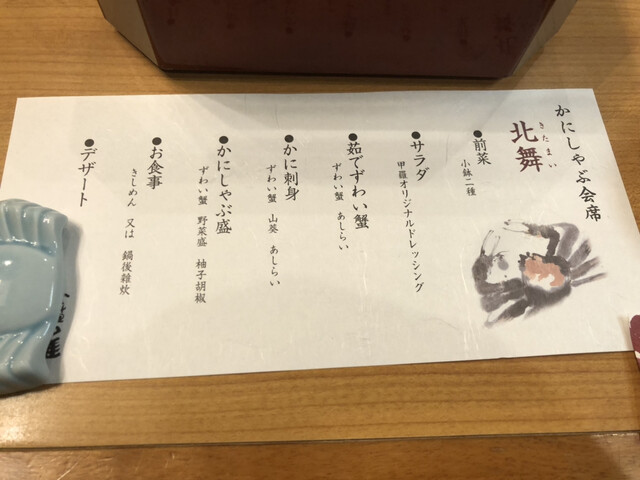 かにしゃぶ会席
きたまい
北舞
●前菜
小鉢二種
●サラダ
甲羅オリジナルドレッシング
●茹でずわい蟹
ずわい蟹 あしらい
●かに刺身
ずわい蟹 山葵 あしらい
●かにしゃぶ盛
ずわい蟹 野菜盛 柚子胡椒
●お食事
きしめん 又は 鍋後雑炊
●デザート